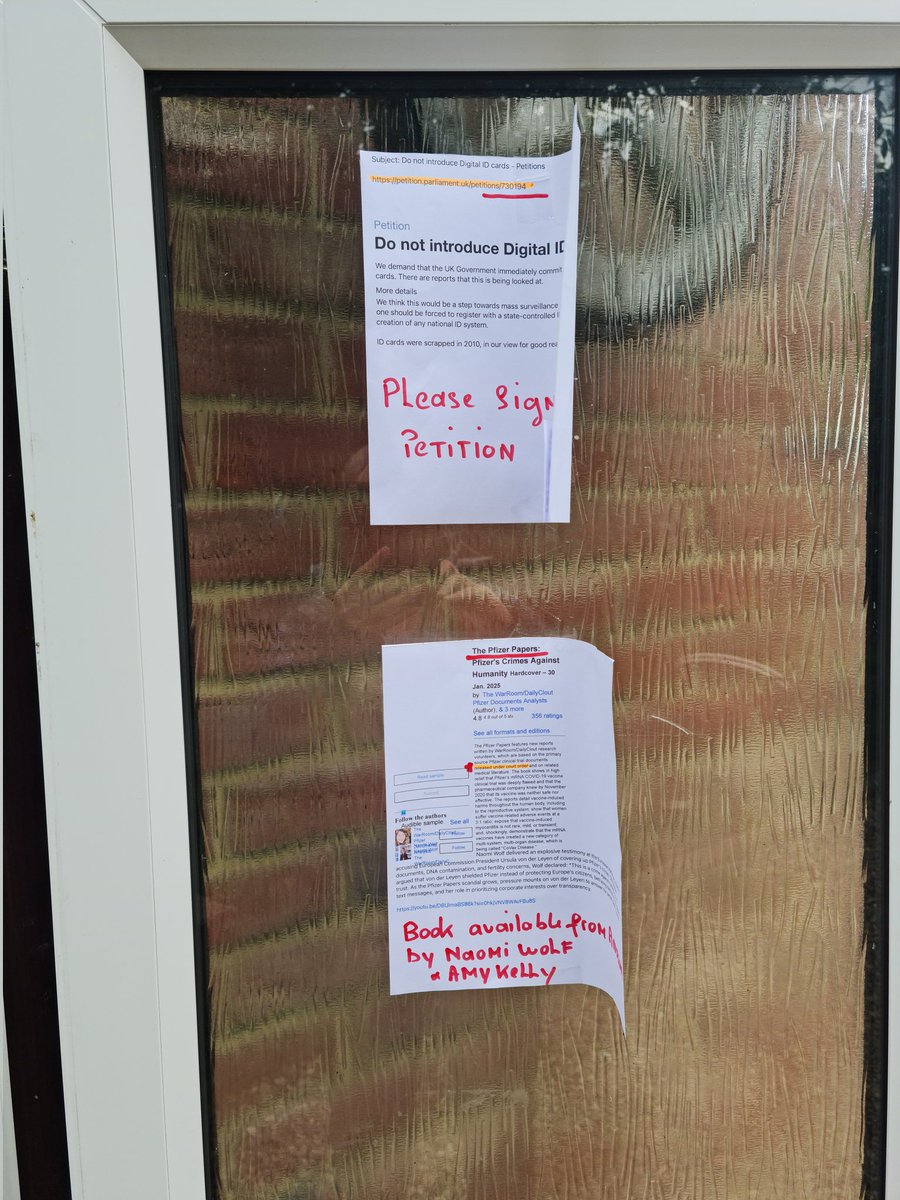 Subject: Do not introduce Digital ID cards - Petitions
https://petition.parliament.uk/petitions/730194
Petition
Do not introduce Digital ID
We demand that the UK Government immediately commit
cards. There are reports that this is being looked at.
More details
We think this would be a step towards mass surveillance
one should be forced to register with a state-controlled
creation of any national ID system.
ID cards were scrapped in 2010, in our view for good rea
PLease Sign
PETITION
The Pfizer Papers:
Pfizer's Crimes Against
Humanity Hardcover – 30
Jan. 2025
by The WarRoom/DailyClout
Pfizer Documents Analysts
(Author), & 3 more
4.8 4.8 out of 5 sta 356 ratings
See all formats and editions
The Pfizer Papers features new reports
written by WarRoom/DailyClout research
volunteers, which are based on the primary
source Pfizer clinical trial documents
released under court order and on related
medical literature. The book shows in high
relief that Pfizer's mRNA COVID-19 vaccine
clinical trial was deeply flawed and that the
pharmaceutical company knew by November
2020 that its vaccine was neither safe nor
effective. The reports detail vaccine-induced
harms throughout the human body, including
to the reproductive system; show that women
suffer vaccine-related adverse events at a
3:1 ratio; expose that vaccine-induced
myocarditis is not rare, mild, or transient;
and, shockingly, demonstrate that the mRNA
vaccines have created a new category of
multi-system, multi-organ disease, which is
being called "CoVax Disease."
Read sample
Follow the authors
Audible sample See all
The
WarRoom/DailyClout
Pfizer
Follow
Follow
The
WarRoom/DailyClout
Naomi Wolf delivered an explosive testimony at the
accusing European Commission President Ursula von der Leyen of covering up
documents, DNA contamination, and fertility concerns, Wolf declared: "This is a crime
argued that von der Leyen shielded Pfizer instead of protecting Europe's citizens,
trust. As the Pfizer Papers scandal grows, pressure mounts on von der Leyen to
text messages, and her role in prioritizing corporate interests over transparency.
Book available from
by NAOMI WOLF
& AMY KELLY